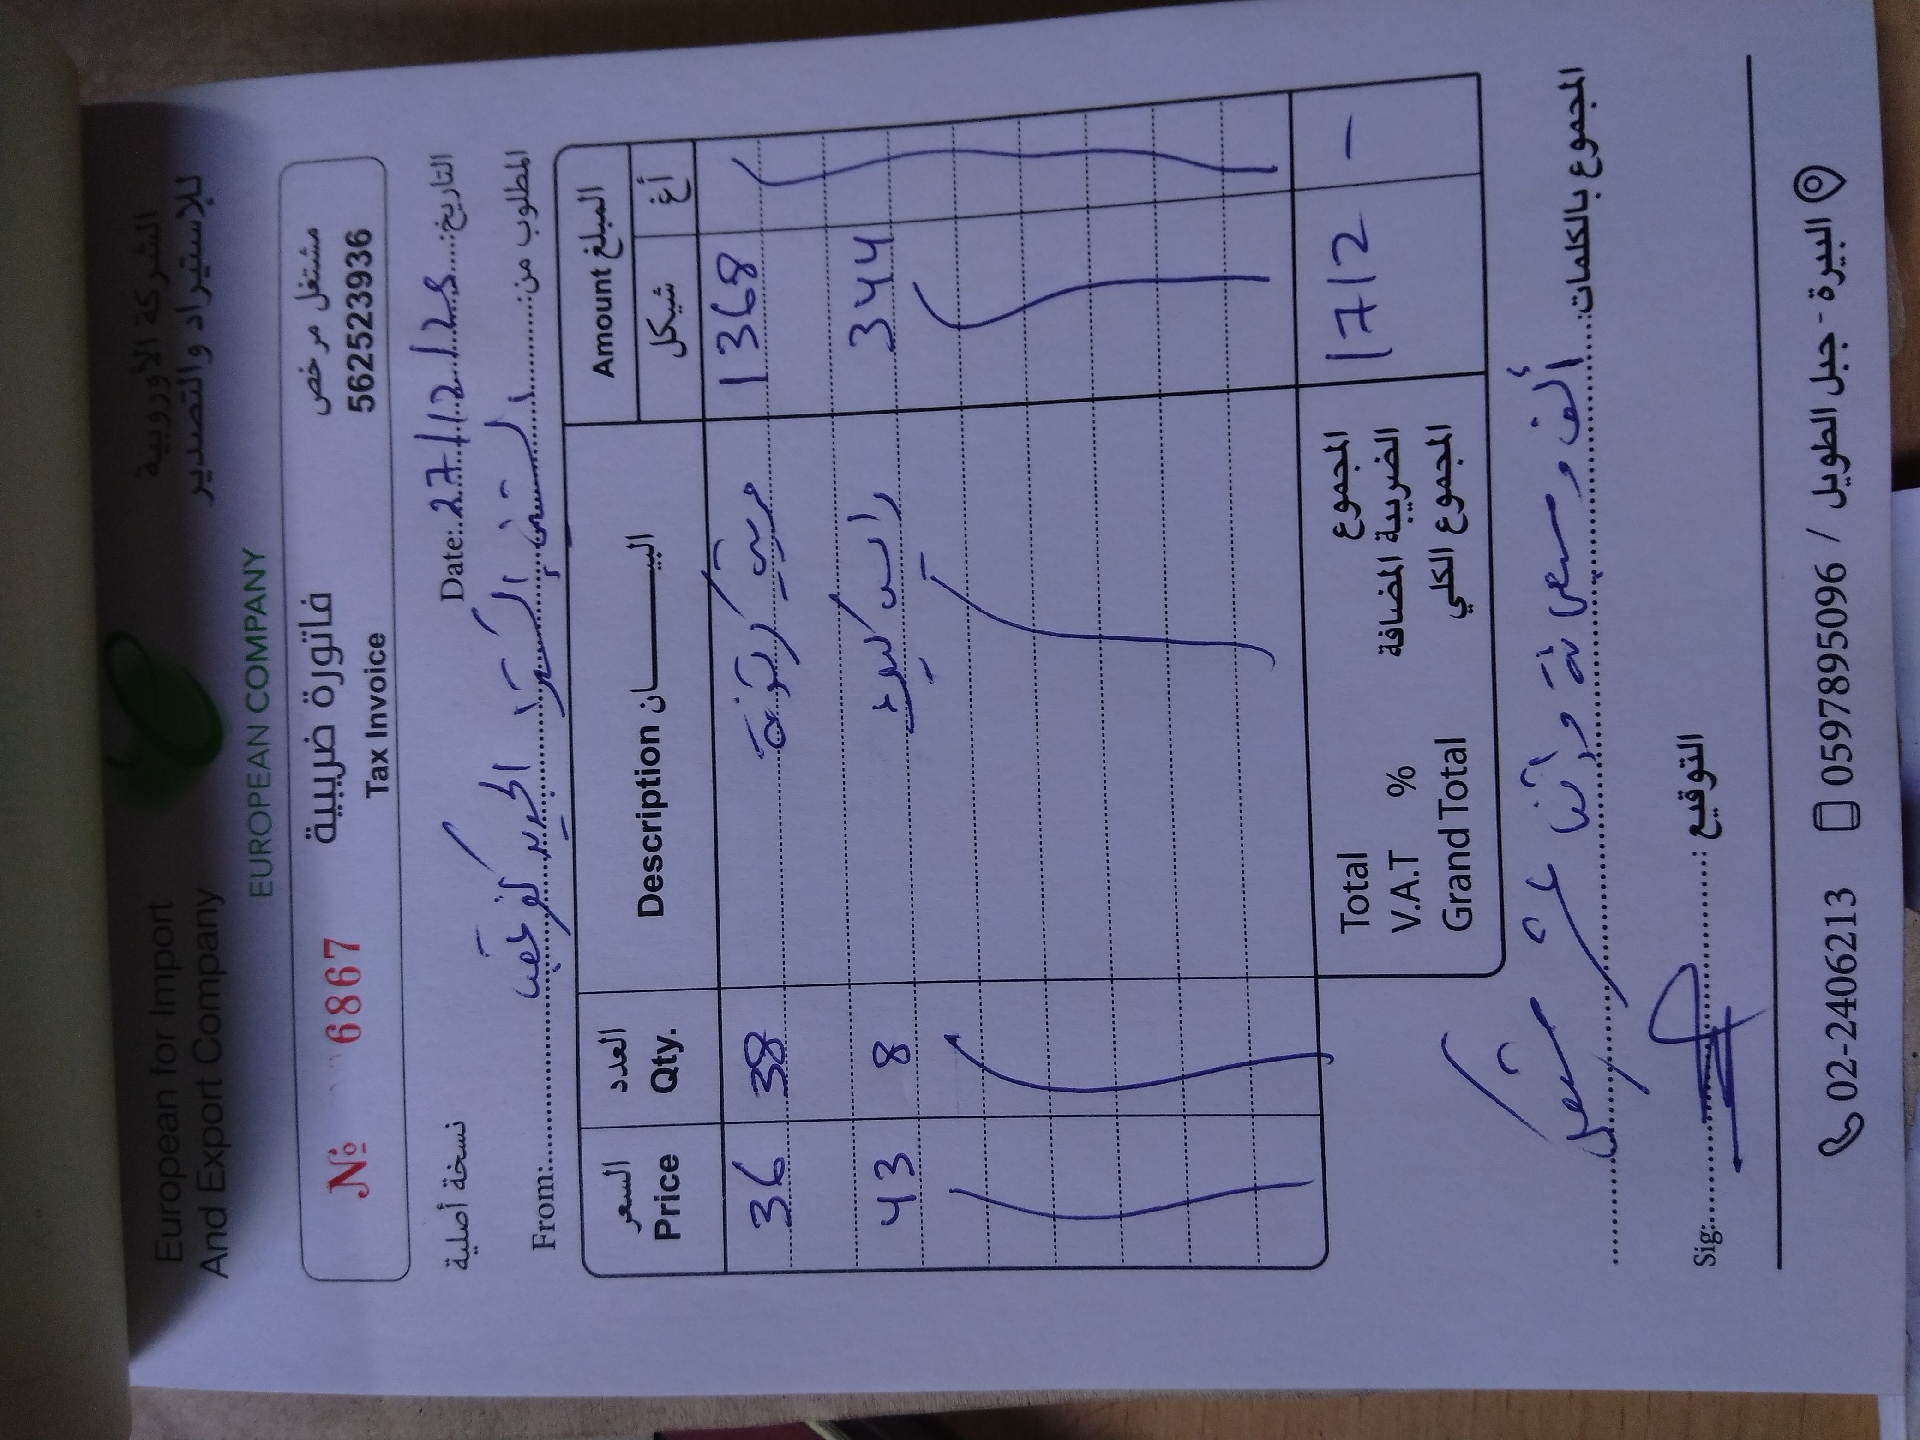 European for Import
And Export Company
الشركة الأوروبية
للإستيراد والتصدير
EUROPEAN COMPANY
№ 6867
فاتورة ضريبية
Tax Invoice
مشتغل مرخص
562523936
نسخة أصلية
Date: 27/12/25 التاريخ:
From: المطلوب من:
السعر
Price
العدد
Qty.
Description البيـــــــان
Amount المبلغ
شيكل
أغ
36 38 1368
43 8 344
Total المجموع
V.A.T % الضريبة المضافة
Grand Total المجموع الكلي
1712 -
المجموع بالكلمات: ألف وسبعمائة واثنا عشر شيكل
Sig: التوقيع:
02-2406213 0597895096 / البيرة - جبل الطويل